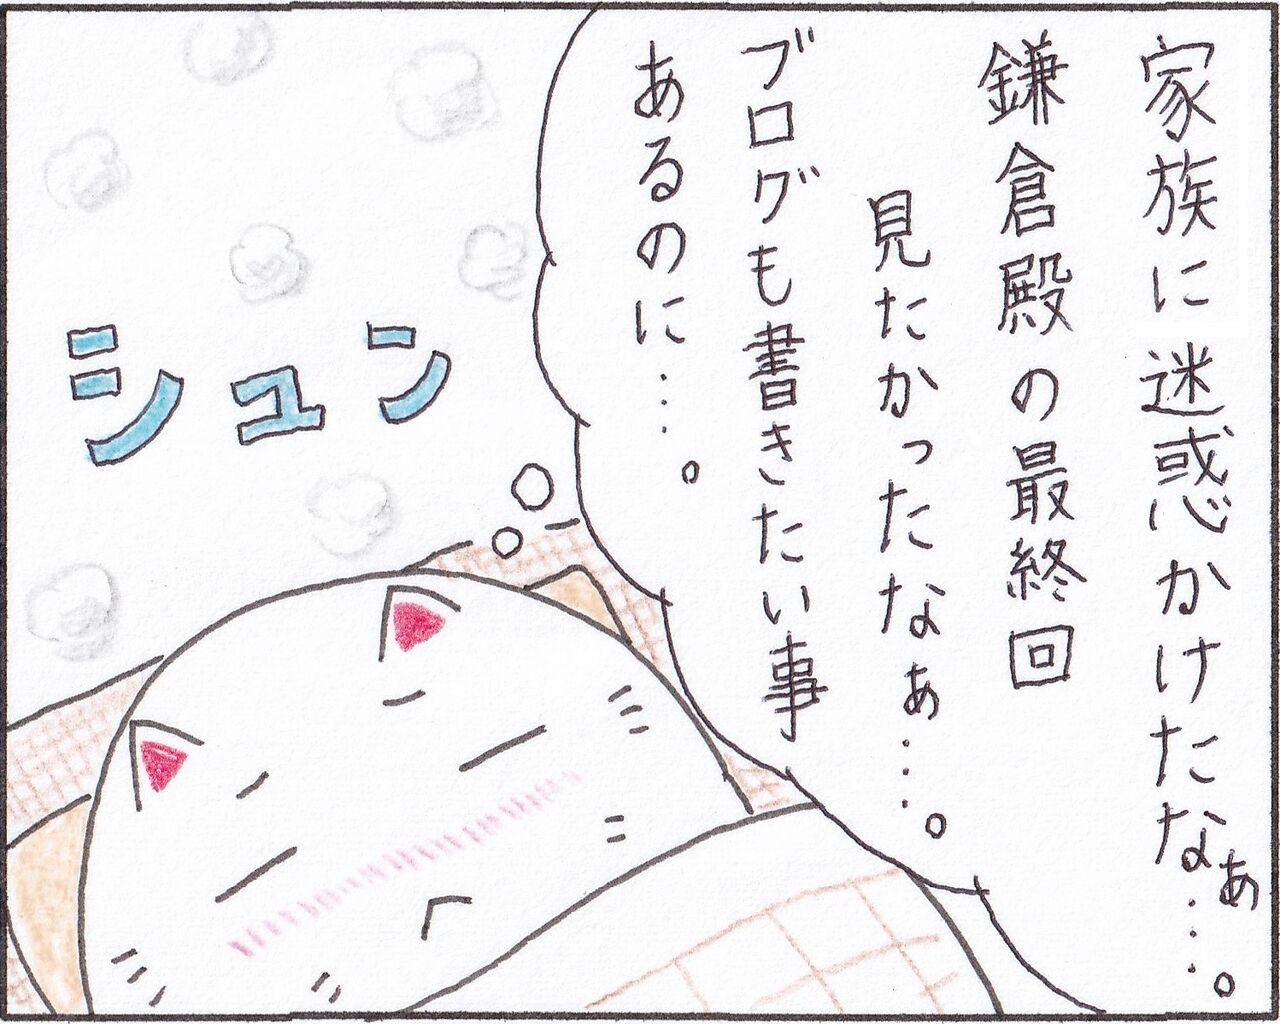 家族に迷惑かけたなぁ…。
鎌倉殿の最終回
見たかったなぁ…。
ブログも書きたい事
あるのに…。
シュン